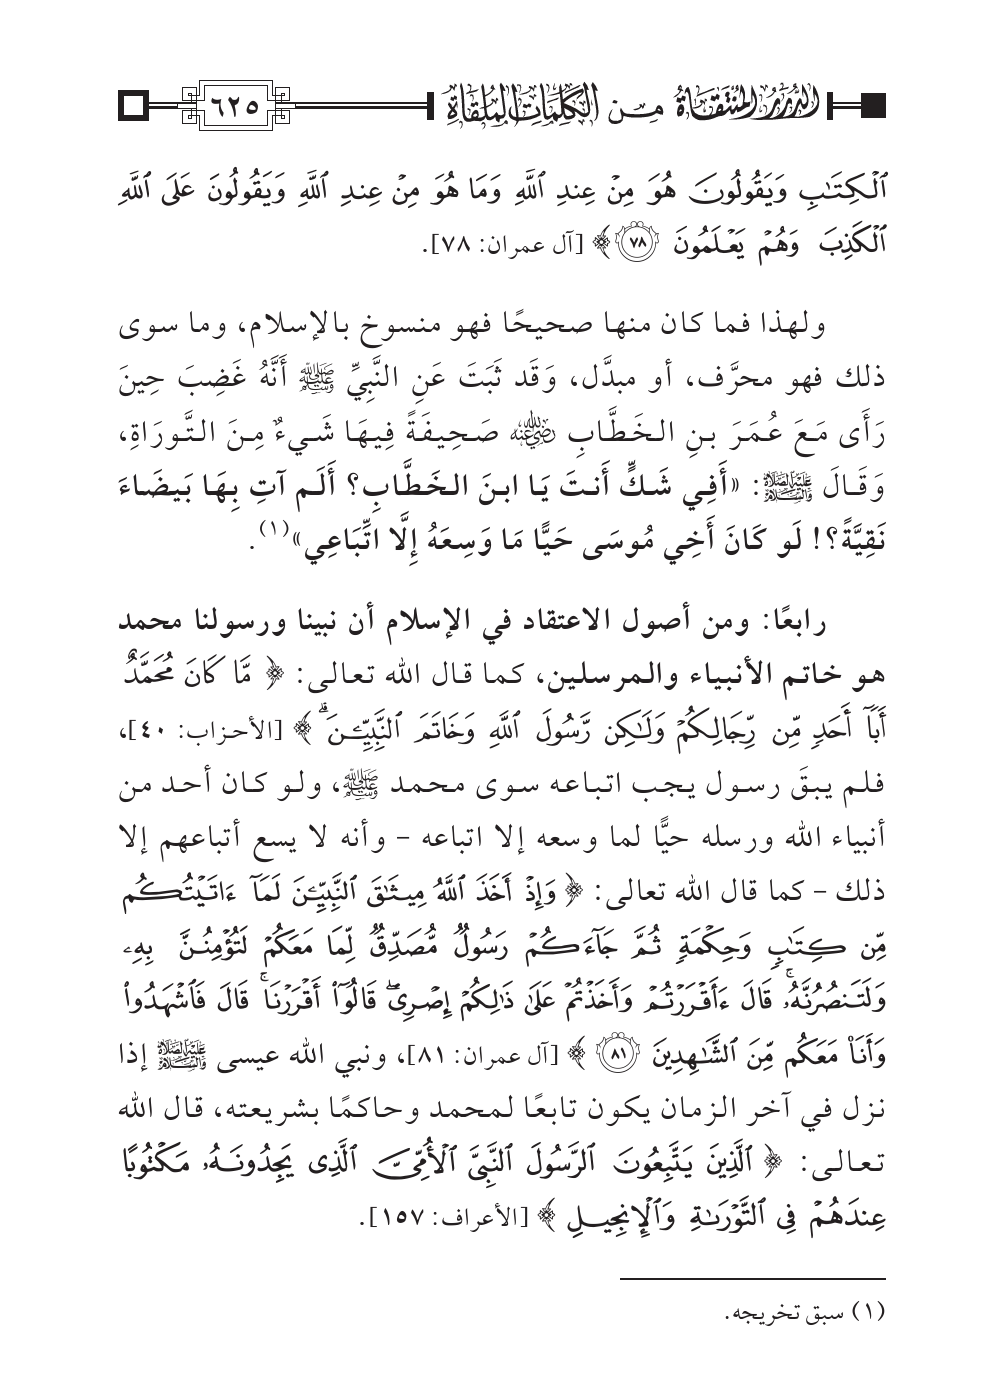 الدُّرَرُ المُنْتَقَاةُ مِـن الكَلِمَاتِ المُلْقَاةِ
٦٢٥
ٱلْكِتَٰبِ وَيَقُولُونَ هُوَ مِنْ عِندِ ٱللَّهِ وَمَا هُوَ مِنْ عِندِ ٱللَّهِ وَيَقُولُونَ عَلَى ٱللَّهِ
ٱلْكَذِبَ وَهُمْ يَعْلَمُونَ ٧٨ ﴾ [آل عمران: ٧٨].
ولهذا فما كان منها صحيحًا فهو منسوخ بالإسلام، وما سوى
ذلك فهو محرَّف، أو مبدَّل، وَقَد ثَبَتَ عَنِ النَّبِيِّ ﷺ أَنَّهُ غَضِبَ حِينَ
رَأَى مَعَ عُمَرَ بنِ الخَطَّابِ رضي الله عنه صَحِيفَةً فِيهَا شَيءٌ مِنَ التَّورَاةِ،
وَقَالَ عليه الصلاة والسلام: «أَفِي شَكٍّ أَنتَ يَا ابنَ الخَطَّابِ؟ أَلَم آتِ بِهَا بَيضَاءَ
نَقِيَّةً؟! لَو كَانَ أَخِي مُوسَى حَيًّا مَا وَسِعَهُ إِلَّا اتِّبَاعِي»(١).
رابعًا: ومن أصول الاعتقاد في الإسلام أن نبينا ورسولنا محمد
هو خاتم الأنبياء والمرسلين، كما قال الله تعالى: ﴿ مَّا كَانَ مُحَمَّدٌ
أَبَآ أَحَدٍ مِّن رِّجَالِكُمْ وَلَٰكِن رَّسُولَ ٱللَّهِ وَخَاتَمَ ٱلنَّبِيِّـۧنَ ۗ ﴾ [الأحزاب: ٤٠]،
فلم يبقَ رسول يجب اتباعه سوى محمد ﷺ، ولو كان أحد من
أنبياء الله ورسله حيًّا لما وسعه إلا اتباعه – وأنه لا يسع أتباعهم إلا
ذلك – كما قال الله تعالى: ﴿ وَإِذْ أَخَذَ ٱللَّهُ مِيثَٰقَ ٱلنَّبِيِّـۧنَ لَمَآ ءَاتَيْتُكُم
مِّن كِتَٰبٍ وَحِكْمَةٍ ثُمَّ جَآءَكُمْ رَسُولٌ مُّصَدِّقٌ لِّمَا مَعَكُمْ لَتُؤْمِنُنَّ بِهِۦ
وَلَتَنصُرُنَّهُۥ ۚ قَالَ ءَأَقْرَرْتُمْ وَأَخَذْتُمْ عَلَىٰ ذَٰلِكُمْ إِصْرِى ۖ قَالُوٓا۟ أَقْرَرْنَا ۚ قَالَ فَٱشْهَدُوا۟
وَأَنَا۠ مَعَكُم مِّنَ ٱلشَّٰهِدِينَ ٨١ ﴾ [آل عمران: ٨١]، ونبي الله عيسى عليه الصلاة والسلام إذا
نزل في آخر الزمان يكون تابعًا لمحمد وحاكمًا بشريعته، قال الله
تعالى: ﴿ ٱلَّذِينَ يَتَّبِعُونَ ٱلرَّسُولَ ٱلنَّبِىَّ ٱلْأُمِّىَّ ٱلَّذِى يَجِدُونَهُۥ مَكْتُوبًا
عِندَهُمْ فِى ٱلتَّوْرَىٰةِ وَٱلْإِنجِيلِ ﴾ [الأعراف: ١٥٧].
(١) سبق تخريجه.